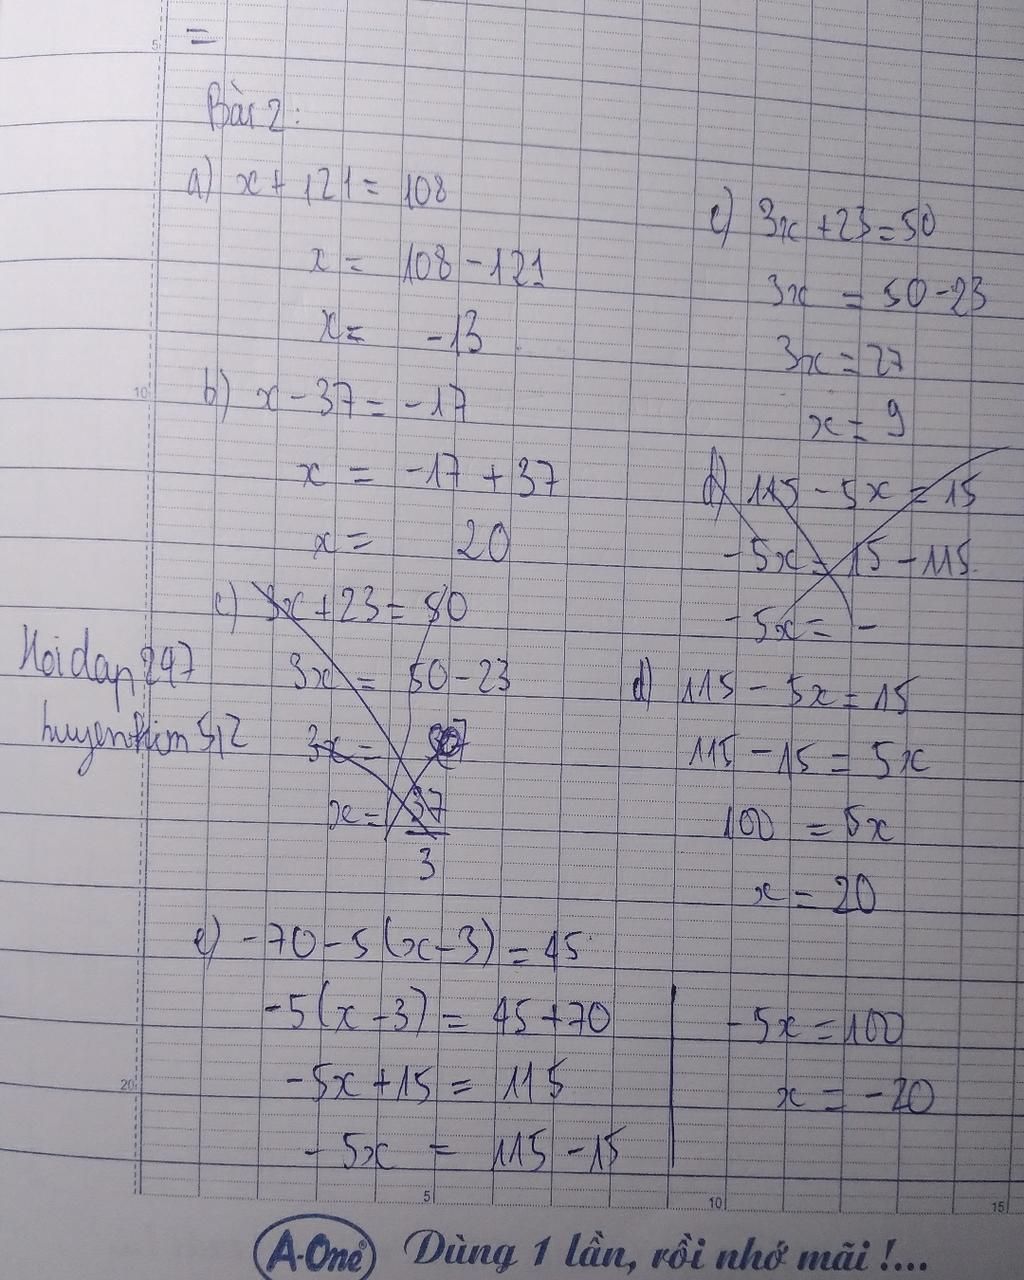 =
Bài 2:
a) x + 121 = 108
x = 108 - 121
x = -13
b) x - 37 = -17
x = -17 + 37
x = 20
c) 3x + 23 = 50
3x = 50 - 23
3x =
x = 37
3
Hoidap247
c) 3x + 23 = 50
3x = 50 - 23
3x = 27
x = 9
d) 115 - 5x = 15
-5x = 15 - 115
-5x = -
d) 115 - 5x = 15
115 - 15 = 5x
100 = 5x
x = 20
e) -70 - 5(x - 3) = 45
-5(x - 3) = 45 + 70
-5x + 15 = 115
-5x = 115 - 15
-5x = 100
x = -20
5
10
20
5
10
15
A-One® Dùng 1 lần, rồi nhớ mãi !...